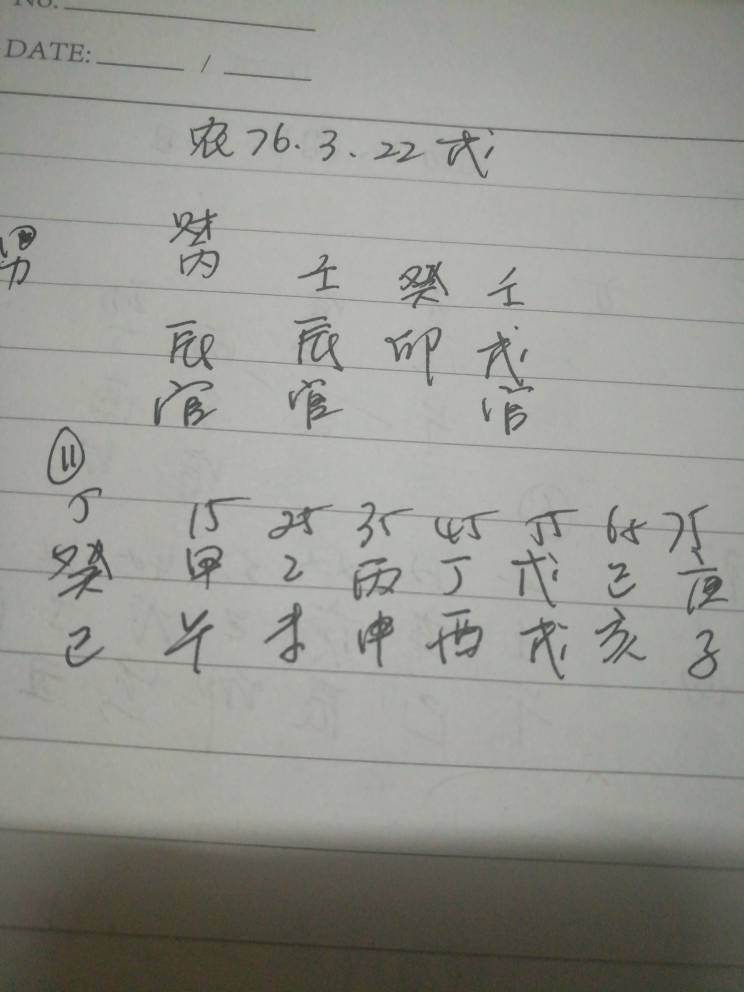 No.
DATE: /
农76.3.22戌
财
男 丙 壬 癸 壬
辰 辰 卯 戌
官 官 官
11
5 15 25 35 45 55 65 75
癸 甲 乙 丙 丁 戊 己 庚
巳 午 未 申 酉 戌 亥 子